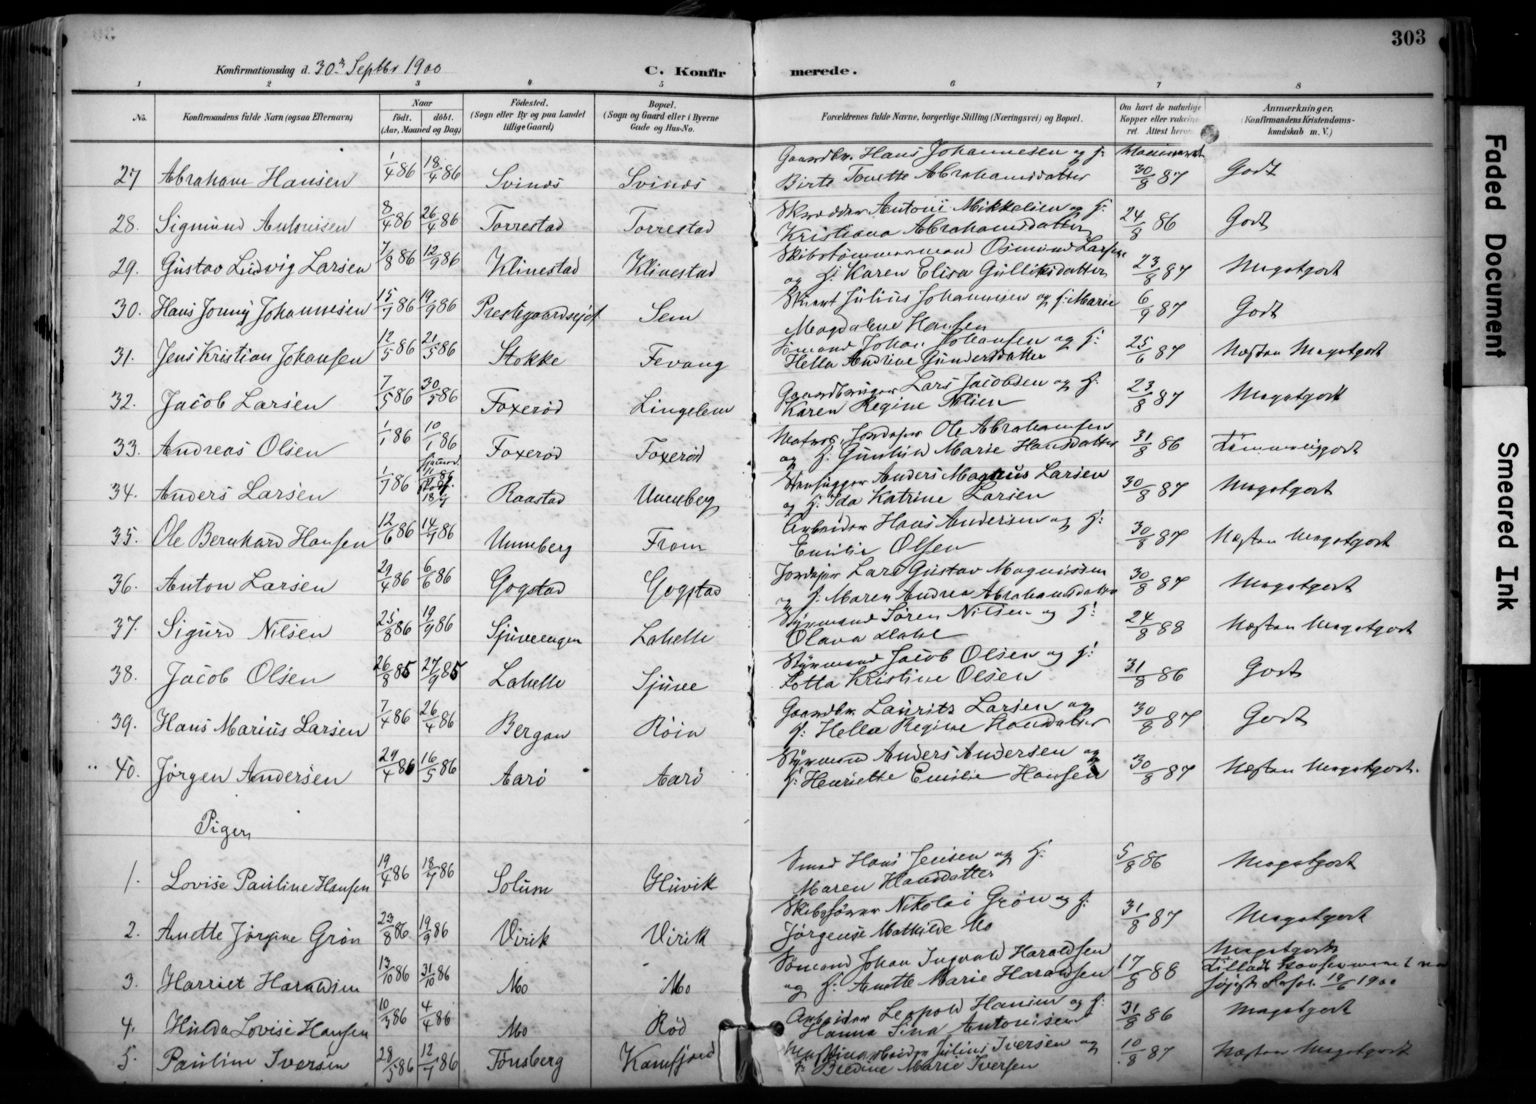 303
Konfirmationsdag d. 30 Septbr 1900
C. Konfirmerede.
1 2 3 4 5 6 7 8
No. Konfirmandens fulde Navn (ogsaa Efternavn) Naar født. døbt. (Aar, Maaned og Dag) Fødested. (Sogn eller By og paa Landet tillige Gaard) Bopæl. (Sogn og Gaard eller i Byerne Gade og Hus-No. Forældrenes fulde Navne, borgerlige Stilling (Næringsvei) og Bopæl. Om havt de naturlige Kopper eller vaccineret. Attest herom. Anmærkninger. (Konfirmandens Kristendomskundskab m. V.)
27 Abraham Hansen 1/4 86 18/4 86 Svinds Svinds Gaardbr. Hans Johannesen og h: Birte Tonette Abrahamsdatter 30/8 87 Godt
28. Sigmund Antonisen 8/4 86 26/4 86 Torrestad Torrestad Skrædder Antoni Mikkelsen og h: Kristiane Abrahamsdatter 24/8 86 Godt
29. Gustav Ludvig Larsen 7/8 86 12/9 86 Klinestad Klinestad Skibstømmermand Osmund Larsen og h: Karen Elisa Gulliksdatter 23/8 87 Megetgodt
30. Hans Jonny Johannesen 15/7 86 19/9 86 Sem Julius Johannesen og h: Marie Magdalene Hansen 6/9 87 Godt
31. Jens Kristian Johansen 12/5 86 21/5 86 Stokke Fevang Sømand Johan Johansen og h: Hella Andrine Gundersdatter 25/6 87 Næsten Megetgodt
32. Jacob Larsen 7/5 86 30/5 86 Foxerød Lingelem Gaardbruger Lars Jacobsen og h. Karen Regine Nilsen 23/8 87 Megetgodt
33. Andreas Olsen 1/1 86 10/1 86 Foxerød Foxerød Ole Abrahamsen og h. Gunhild Marie Hansdatter 31/8 86 Temmeliggodt
34. Anders Larsen 1/7 86 Raastad Unneberg Stenhugger Anders Magnus Larsen og h: Ida Katrine Larsen 30/8 87 Megetgodt
35. Ole Bernhard Hansen 12/6 86 14/9 86 Unneberg From Arbeider Hans Andersen og h: Emilie Olsen 30/8 87 Næsten Megetgodt
36. Anton Larsen 29/4 86 6/6 86 Gogstad Gogstad Jordejer Lars Gustav Magnussen og h. Maren Andrea Abrahamsdatter 30/8 87 Megetgodt
37. Sigurd Nilsen 25/8 86 19/9 86 Lahelle Styrmand Søren Nilsen og h: Olava 24/8 88 Næsten Megetgodt
38. Jacob Olsen 26/8 85 27/9 85 Lahelle Sjuve Styrmand Jacob Olsen og h: Lotta Kristine Olsen 31/8 86 Godt
39. Hans Marius Larsen 7/4 86 26/4 86 Bergan Røin Gaardbr Laurits Larsen og h: Hella Regine Hansdatter 30/8 87 Godt
40. Jørgen Andersen 29/4 86 16/5 86 Aarø Aarø Styrmand Anders Andersen og h: Henriette Emilie Hansen 30/8 87 Næsten Megetgodt.
Piger
1. Lovise Pauline Hansen 19/4 86 18/7 86 Solum Huvik Smed Hans Jensen og h: Maren Hansdatter 5/8 86 Megetgodt
2. Anette Jørgine Grøn 23/8 86 19/9 86 Virik Virik Skibsfører Nikolai Grøn og h: Jørgense Mathilde Mo 31/8 87 Megetgodt
3. Harriet Haraldsen 13/10 86 31/10 86 Mo Mo Sømand Johan Ingvald Haraldsen og h: Anette Marie Haraldsen 17/8 88 Megetgodt 1900
4. Hulda Lovise Hansen 10/3 86 4/4 86 Mo Rød Arbeider Leopold Hansen og h: Hanna Sina Antonisen 31/8 86 Megetgodt
5. Pauline Iversen 28/5 86 12/7 86 Tønsberg Kamfjord Julius Iversen og h: Bredine Marie Iversen 10/8 87 Næsten Megetgodt
Faded Document
Smeared Ink